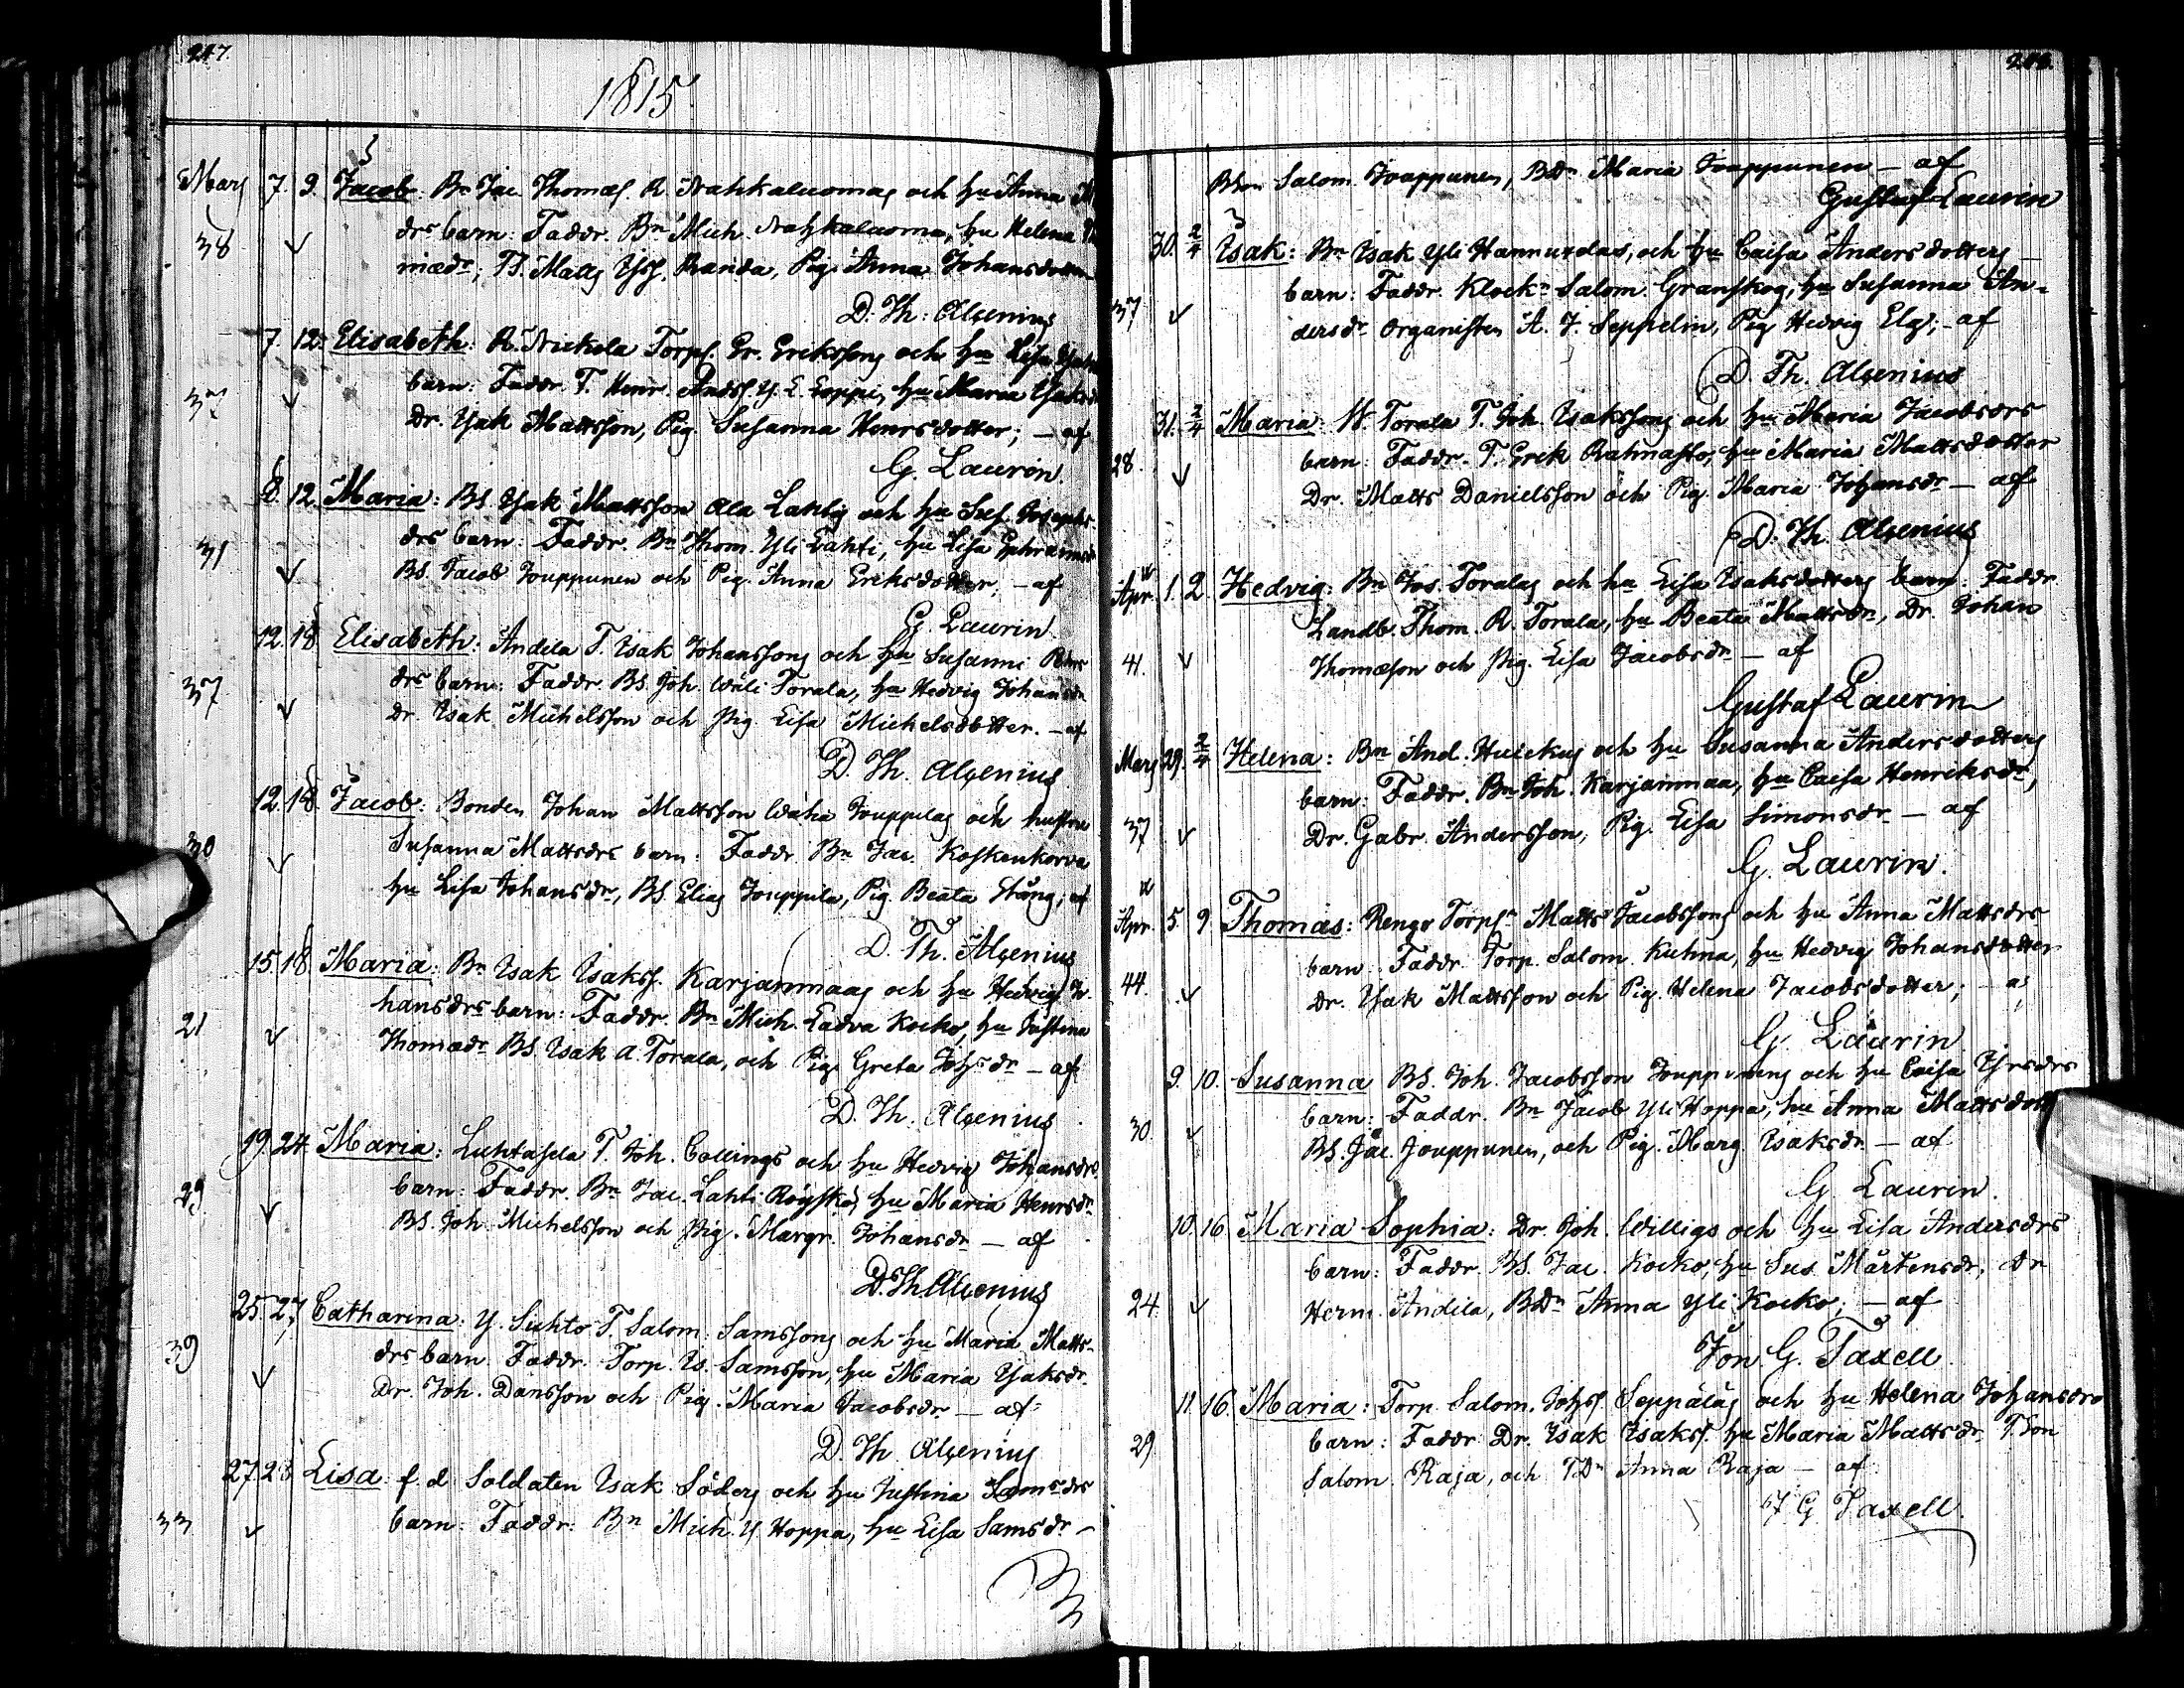 247.
1815
Marj 7. 9. Jacob. Bn Jac. Thomæs. R. Nahkaluomas och hu Anna
38 drs barn: Faddr. Bn Mich. Nahkaluoma, hu Helena
mædr, B. Matts Ysf. Randa, Pig. Anna Johansdotter
D. Th: Alcenius
7. 12. Elisabeth: R. Nickola Torps. Er. Erikssons och hu Lisa
37 barn: Faddr. T. Henr. Andss. Y. L. Loppi, hu Maria Isaksdr
Dr. Isak Mattsson, Pig. Susanna Henrsdotter; — af
G. Laurin.
8. 12. Maria: BS. Isak Mattsson Ala Lahtis och hu Sus. Josephs
31 drs barn: Faddr. Bn Thom. Yli Lahti, hu Lisa Ephraimsdr
BS. Jacob Jouppunen och Pig. Anna Eriksdotter; — af
G. Laurin.
12. 18. Elisabeth: Andila T. Isak Johanssons och hu Susanna
37 drs barn: Faddr. BS. Joh. Wäli Torala, hu Hedvig Johansdr
Dr. Isak Michelsson och Pig. Lisa Michelsdotter. — af
D. Th. Alcenius
12. 18. Jacob: Bonden Johan Mattsson Waha Jouppilas och hustru
30 Susanna Mattsdrs barn: Faddr. Bn Jac. Koskenkorva
hu Lisa Johansdr, BS. Elias Jouppila, Pig. Beata Stång; af
D. Th. Alcenius
15. 18. Maria: Bn Isak Isakss. Karjanmaas och hu Hedvig Jo-
21 hansdrs barn: Faddr. Bn Mich. Ladva Kocko, hu Justina
Thomædr BS. Isak A. Torala, och Pig. Greta Johsdr — af
D. Th. Alcenius
19. 24. Maria: Luhtasela T. Joh. Collings och hu Hedvig Johansdrs
29 barn: Faddr. Bn Jac. Lahti Röyskö, hu Maria Henrsdr
BS. Joh. Michelsson och Pig. Margr. Johansdr — af
D. Th. Alcenius
25. 27. Catharina: Y. Luhto T. Salom: Samssons och hu Maria Matts-
39 drs barn: Faddr. Torp. Is. Samsson, hu Maria Isaksdr.
Dr. Joh. Dansson och Pig. Maria Jacobsdr — af
D. Th. Alcenius
27. 28. Lisa: f. d. Soldaten Isak Söders och hu Justina Samsdrs
33 barn: Faddr: Bn Mich. Y. Hoppa, hu Lisa Samsdr —
Salom. Jouppunen, BDn Maria Jouppunen — af
Gustaf Laurin
30. 2/4 Isak: Bn Isak Yli Hannukelas, och hu Caisa Andersdotters
37 barn: Faddr. Klockn Salom. Granskog, hu Susanna An-
dersdr Organisten A. J. Seppelin, Pig Hedvig Elg; — af
D. Th. Alcenius
31. 2/4 Maria: W. Torala T. Joh. Isakssons och hu Maria Jacobsdrs
28. barn: Faddr. T. Erik Rahnasto, hu Maria Mattsdotter
Dr. Matts Danielsson och Pig. Maria Johansdr — af
D. Th. Alcenius
Apr. 1. 2. Hedvig: Bn Jos. Toralas och hu Lisa Isaksdotters barn: Faddr.
Landb. Thom. R. Torala, hu Beata Mattsdr, Dr. Johan
41. Thomæson och Pig. Lisa Jacobsdr — af
Gustaf Laurin
Marj 29. 2/4 Helena: Bn And. Huickus och hu Susanna Andersdotters
barn: Faddr. Bn Joh. Karjanmaa, hu Caisa Henriksdr,
37 Dr. Gabr. Andersson, Pig. Lisa Simonsdr — af
G. Laurin.
Apr. 5. 9. Thomas: Rengo Torpn Matts Jacobssons och hu Anna Mattsdrs
barn: Faddr. Torp. Salom. Kuhna, hu Hedvig Johansdotter
44. Dr. Isak Mattsson och Pig. Helena Jacobsdotter; — af
G. Laurin
9. 10. Susanna BS. Joh. Jacobsson Jouppunens och hu Caisa
barn: Faddr. Bn Jacob Yli Hoppa, hu Anna Mattsdott
30. BS. Jac. Jouppunen, och Pig. Marg. Isaksdr — af
G. Laurin.
10. 16. Maria Sophia: Dr. Joh. Willigs och hu Lisa Andersdrs
barn: Faddr. BS. Jac. Kocko, hu Sus. Mårtensdr, Dr
24. Herm. Andila, BDn Anna Yli Kocko; — af
Jon G. Taxell.
11. 16. Maria: Torp. Salom. Johss. Seppäläs och hu Helena Johansdrs
29. barn: Faddr. Dr. Isak Isakss. hu Maria Mattsdr, T. Son
Salom. Raja, och TDn Anna Raja — af
J G Taxell.